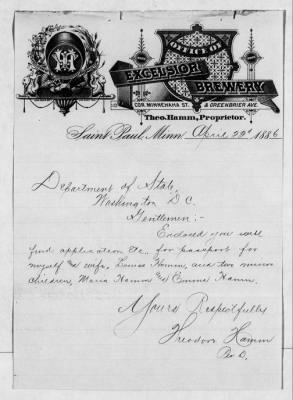 OFFICE OF
EXCELSIOR
BREWERY
COR. MINNEHAHA ST. & GREENBRIER AVE.
Theo. Hamm, Proprietor.
Saint Paul, Minn April 22d 1886
Department of State,
Washington D C.
Gentlemen:-
Enclosed you will
find application Etc. for passport for
myself & wife, Louise Hamm, and two minor
children, Maria Hamm & Emma Hamm.
Yours Respectfully
Theodor Hamm
Per O.